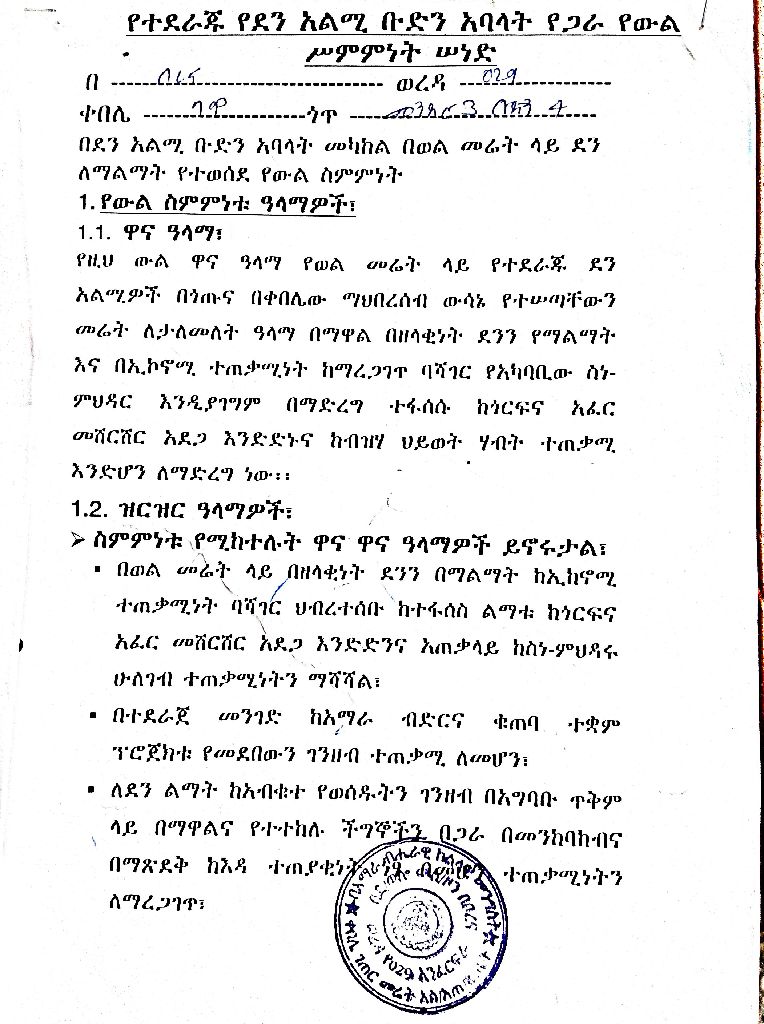 የተደራጁ የደን አልሚ ቡድን አባላት የጋራ የውል
ሥምምነት ሠነድ
በ ------------------------------------ ወረዳ --------------------
ቀበሌ ----------------------ጎጥ ---------------------------------
በደን አልሚ ቡድን አባላት መካከል በወል መሬት ላይ ደን
ለማልማት የተወሰደ የውል ስምምነት
1. የውል ስምምነቱ ዓላማዎች፣
1.1. ዋና ዓላማ፣
የዚህ ውል ዋና ዓላማ የወል መሬት ላይ የተደራጁ ደን
አልሚዎች በጎጡና በቀበሌው ማህበረሰብ ውሳኔ የተሠጣቸውን
መሬት ለታለመለት ዓላማ በማዋል በዘላቂነት ደንን የማልማት
እና በኢኮኖሚ ተጠቃሚነት ከማረጋገጥ ባሻገር የአካባቢው ስነ-
ምህዳር እንዲያገግም በማድረግ ተፋሰሱ ከጎርፍና አፈር
መሸርሸር አደጋ እንድድኑና ከብዝሃ ህይወት ሃብት ተጠቃሚ
እንድሆን ለማድረግ ነው፡፡
1.2. ዝርዝር ዓላማዎች፣
➢ ስምምነቱ የሚከተሉት ዋና ዋና ዓላማዎች ይኖሩታል፣
▪ በወል መሬት ላይ በዘላቂነት ደንን በማልማት ከኢከኖሚ
ተጠቃሚነት ባሻገር ህብረተሰቡ ከተፋሰስ ልማቱ ከጎርፍና
አፈር መሸርሸር አደጋ እንድድንና አጠቃላይ ከስነ-ምህዳሩ
ሁለገብ ተጠቃሚነትን ማሻሻል፣
▪ በተደራጀ መንገድ ከአማራ ብድርና ቁጠባ ተቋም
ፕሮጀክቱ የመደበውን ገንዘብ ተጠቃሚ ለመሆን፣
▪ ለደን ልማት ከአብቁተ የወሰዱትን ገንዘብ በአግባቡ ጥቅም
ላይ በማዋልና የተተከሉ ችግኞችን በጋራ በመንከባከብና
በማጽደቅ ከእዳ ተጠያቂነት ተጠቃሚነትን
ለማረጋገጥ፣